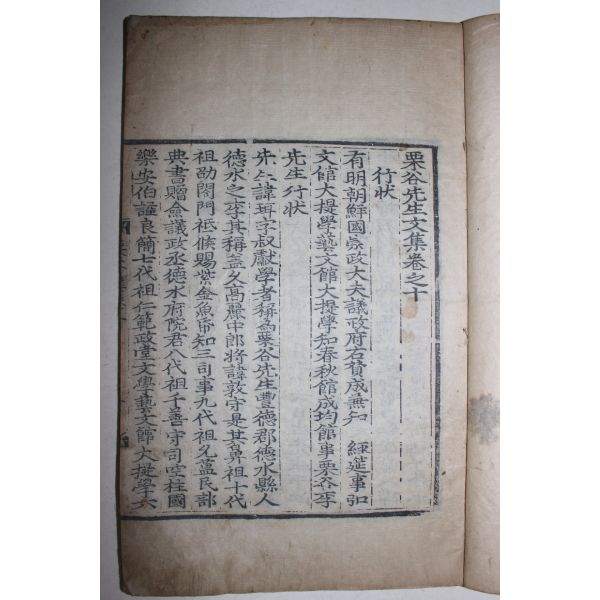 栗谷先生文集卷之十
行狀
有明朝鮮國崇政大夫議政府右贊成兼知 經筵事弘
文館大提學藝文館大提學知春秋館成均館事栗谷李
先生行狀
先生諱珥字叔獻學者稱爲栗谷先生豊德郡德水縣人
德水之李其稱盖久高麗中郎將諱敦守是其鼻祖十代
祖劭閤門祗候賜紫金魚帒知三司事九代祖允蒕民部
典書贈僉議政丞德水府院君八代祖千善守司空柱國
樂安伯謚良簡七代祖仁範政堂文學藝文館大提學六